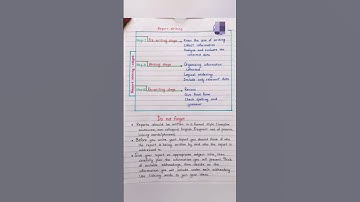 Report Writing
Report writing stages
Step 1 Pre writing stage → Know the aim of writing
Collect information
Analyse and evaluate the collected data
Step 2 Writing stage → Organising information collected
Logical ordering
Include only relevant data
Step 3 Re-writing stage → Revise
Give final form
Check spelling and grammar
Do not Forget
• Reports should be written in a formal style (complete
sentences, non colloquial English, frequent use of passive,
linking words/phrases).
• Before you write your report you should know if who
the report is being written by and who the report is
addressed to.
• Give your report an appropriate subject title, then
carefully plan the information you will present. Think
of suitable subheadings, then decide on the
information you will include under each subheading
Use linking words to join your ideas.